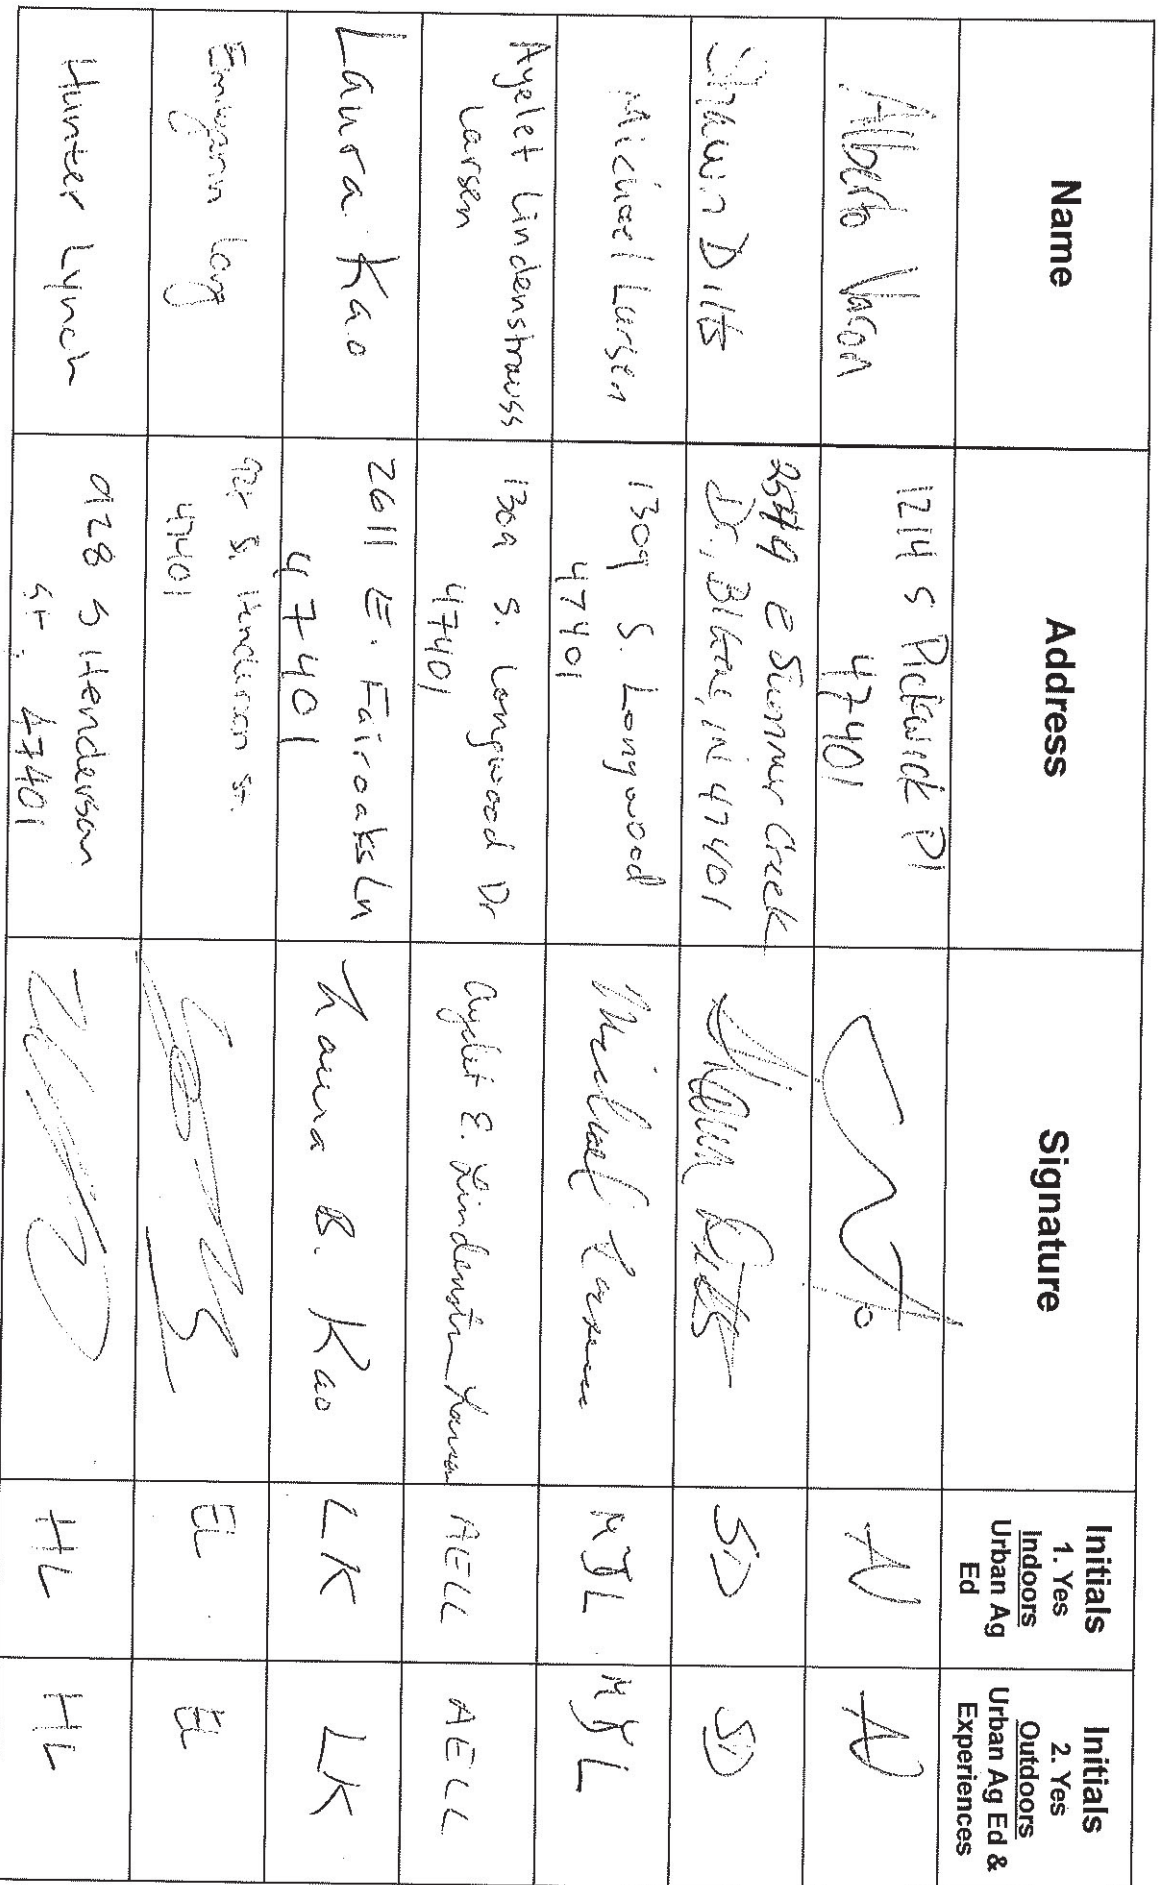 Name
Address
Signature
Initials
1. Yes
Indoors
Urban Ag
Ed
Initials
2. Yes
Outdoors
Urban Ag Ed &
Experiences
Alberto Varon
1214 S Pickwick Pl
47401
AV
AV
Shawn Dilts
2544 E Summer Creek
Dr., Blgtn, IN 47401
Shawn Dilts
SD
SD
Michael Larsen
1309 S. Longwood
47401
Michael Larsen
MJL
MJL
Ayelet Lindenstrauss
Larsen
1309 S. Longwood Dr
47401
Ayelet E. Lindenstr Larsen
AELL
AELL
Laura Kao
2611 E. Fairoaks Ln
47401
Laura B. Kao
LK
LK
Long
S. Henderson St.
47401
EL
EL
Hunter Lynch
928 S Henderson
St. 47401
HL
HL